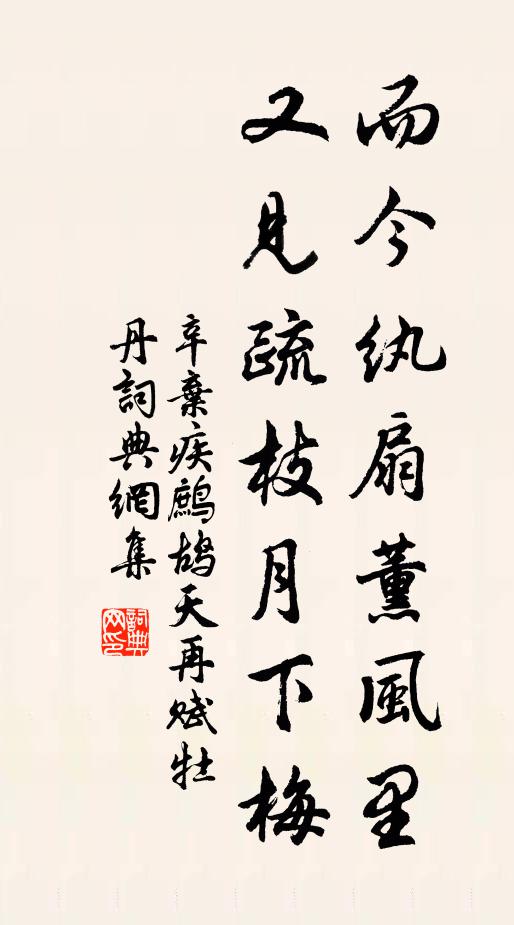 而今纨扇薰風里
又見疏枝月下梅
辛棄疾鷓鴣天再赋牡
丹詞典網集
詞典网印